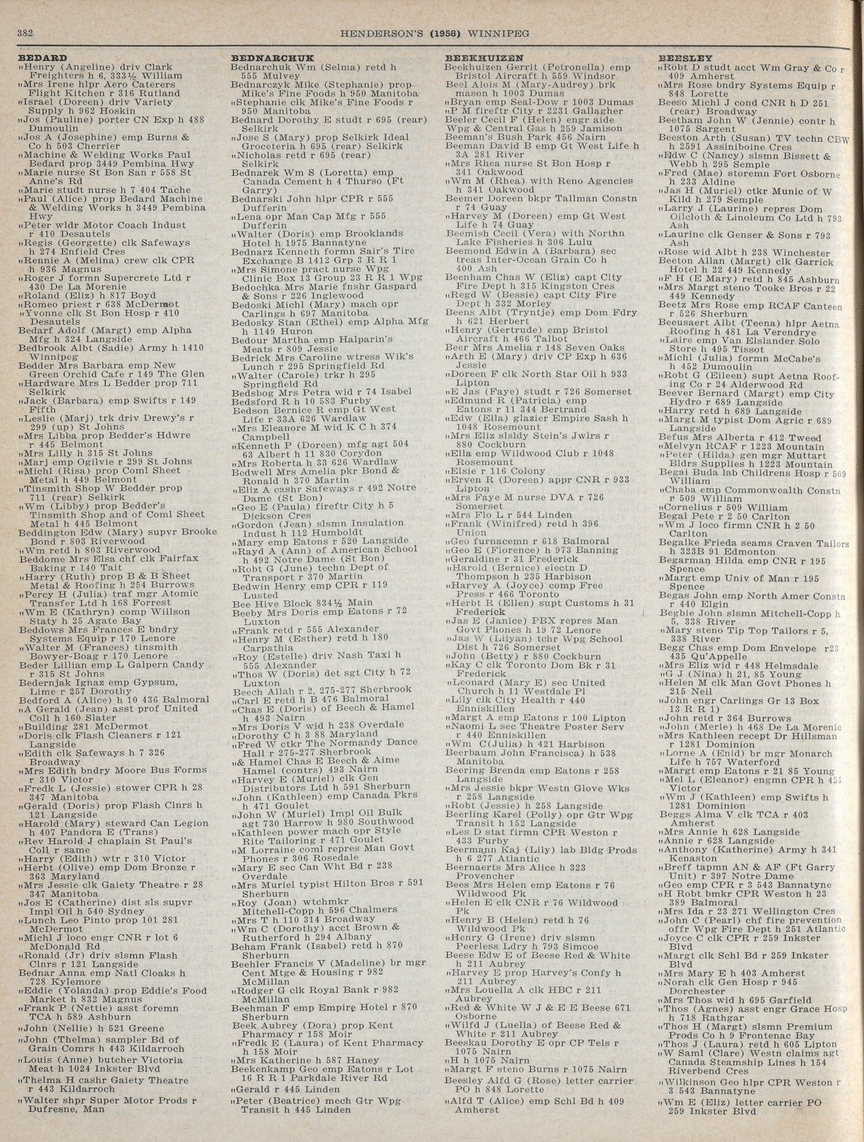 382
HENDERSON'S (1958) WINNIPEG
BEDARD
"Henry (Angeline) driv Clark
Freighters h 6, 333½ William
"Mrs Irene hlpr Aero Caterers
Flight Kitchen r 316 Rutland
"Israel (Doreen) driv Variety
Supply h 962 Hoskin
"Jos (Pauline) porter CN Exp h 488
Dumoulin
"Jos A (Josephine) emp Burns &
Co h 503 Cherrier
"Machine & Welding Works Paul
Bedard prop 3449 Pembina Hwy
"Marie nurse St Bon San r 558 St
Anne's Rd
"Marie studt nurse h 7 404 Tache
"Paul (Alice) prop Bedard Machine
& Welding Works h 3449 Pembina
Hwy
"Peter wldr Motor Coach Indust
r 410 Desautels
"Regis (Georgette) clk Safeways
h 274 Enfield Cres
"Rennie A (Melina) crew clk CPR
h 936 Magnus
"Roger J formn Supercrete Ltd r
430 De La Morenie
"Roland (Eliz) h 817 Boyd
"Romeo priest r 638 McDermot
"Yvonne clk St Bon Hosp r 410
Desautels
Bedarf Adolf (Margt) emp Alpha
Mfg h 324 Langside
Bedbrook Albt (Sadie) Army h 1410
Winnipeg
Bedder Mrs Barbara emp New
Green Orchid Cafe r 149 The Glen
"Hardware Mrs L Bedder prop 711
Selkirk
"Jack (Barbara) emp Swifts r 149
Fifth
"Leslie (Marj) trk driv Drewry's r
299 (up) St Johns
"Mrs Libba prop Bedder's Hdwre
r 445 Belmont
"Mrs Lilly h 315 St Johns
"Marj emp Ogilvie r 299 St Johns
"Michl (Risa) prop Coml Sheet
Metal h 449 Belmont
"Tinsmith Shop W Bedder prop
711 (rear) Selkirk
"Wm (Libby) prop Bedder's
Tinsmith Shop and of Coml Sheet
Metal h 445 Belmont
Beddington Edw (Mary) supvr Brooke
Bond r 803 Riverwood
"Wm retd h 803 Riverwood
Beddome Mrs Elsa chf clk Fairfax
Baking r 140 Tait
"Harry (Ruth) prop B & B Sheet
Metal & Roofing h 254 Burrows
"Percy H (Julia) traf mgr Atomic
Transfer Ltd h 168 Forrest
"Wm E (Kathryn) comp Willson
Staty h 25 Agate Bay
Beddows Mrs Frances E bndry
Systems Equip r 170 Lenore
"Walter M (Frances) tinsmith
Bowyer-Boag r 170 Lenore
Beder Lillian emp L Galpern Candy
r 315 St Johns
Bedernjak Ignaz emp Gypsum,
Lime r 257 Dorothy
Bedford A (Alice) h 10 436 Balmoral
"A Gerald (Jean) asst prof United
Coll h 160 Slater
"Building 281 McDermot
"Doris clk Flash Cleaners r 121
Langside
"Edith clk Safeways h 7 326
Broadway
"Mrs Edith bndry Moore Bus Forms
r 310 Victor
"Fredk L (Jessie) stower CPR h 28
347 Manitoba
"Gerald (Doris) prop Flash Clnrs h
121 Langside
"Harold (Mary) steward Can Legion
h 407 Pandora E (Trans)
"Rev Harold J chaplain St Paul's
Coll r same
"Harry (Edith) wtr r 310 Victor
"Herbt (Olive) emp Dom Bronze r
363 Maryland
"Mrs Jessie clk Gaiety Theatre r 28
347 Manitoba
"Jos E (Catherine) dist sls supvr
Impl Oil h 540 Sydney
"Lunch Leo Pinto prop 101 281
McDermot
"Michl J loco engr CNR r lot 6
McDonald Rd
"Ronald (Jr) driv slsmn Flash
Clnrs r 121 Langside
Bednar Anna emp Natl Cloaks h
728 Kylemore
"Eddie (Yolanda) prop Eddie's Food
Market h 832 Magnus
"Frank P (Nettie) asst foremn
TCA h 589 Ashburn
"John (Nellie) h 521 Greene
"John (Thelma) sampler Bd of
Grain Comrs h 443 Kildarroch
"Louis (Anne) butcher Victoria
Meat h 1024 Inkster Blvd
"Thelma H cashr Gaiety Theatre
r 443 Kildarroch
"Walter shpr Super Motor Prods r
Dufresne, Man
BEDNARCHUK
Bednarchuk Wm (Selma) retd h
555 Mulvey
Bednarczyk Mike (Stephanie) prop
Mike's Fine Foods h 950 Manitoba
"Stephanie clk Mike's Fine Foods r
950 Manitoba
Bednard Dorothy E studt r 695 (rear)
Selkirk
"Jose S (Mary) prop Selkirk Ideal
Groceteria h 695 (rear) Selkirk
"Nicholas retd r 695 (rear)
Selkirk
Bednarek Wm S (Loretta) emp
Canada Cement h 4 Thurso (Ft
Garry)
Bednarski John hlpr CPR r 555
Dufferin
"Lena opr Man Cap Mfg r 555
Dufferin
"Walter (Doris) emp Brooklands
Hotel h 1975 Bannatyne
Bednarz Kenneth formn Sair's Tire
Exchange B 1412 Grp 3 R R 1
"Mrs Simone pract nurse Wpg
Clinic Box 13 Group 23 R R 1 Wpg
Bedochka Mrs Marie fnshr Gaspard
& Sons r 226 Inglewood
Bedoski Michl (Mary) mach opr
Carlings h 697 Manitoba
Bedosky Stan (Ethel) emp Alpha Mfg
h 1149 Huron
Bedour Martha emp Halparin's
Meats r 809 Jessie
Bedrick Mrs Caroline wtress Wik's
Lunch r 295 Springfield Rd
"Walter (Carole) trkr h 295
Springfield Rd
Bedsbog Mrs Petra wid r 74 Isabel
Bedsford R h 10 583 Furby
Bedson Bernice R emp Gt West
Life r 33A 626 Wardlaw
"Mrs Eleanore M wid K C h 374
Campbell
"Kenneth P (Doreen) mfg agt 504
63 Albert h 11 830 Corydon
"Mrs Roberta h 33 626 Wardlaw
Bedwell Mrs Amelia pkr Bond &
Ronald h 370 Martin
"Eliz A cashr Safeways r 492 Notre
Dame (St Bon)
"Geo E (Paula) fireftr City h 5
Dickson Cres
"Gordon (Jean) slsmn Insulation
Indust h 112 Humboldt
"Mary emp Eatons r 520 Langside
"Rayd A (Ann) of American School
h 492 Notre Dame (St Bon)
"Robt G (June) techn Dept of
Transport r 370 Martin
Bedwin Henry emp CPR r 119
Lusted
Bee Hive Block 834½ Main
Beeby Mrs Doris emp Eatons r 72
Luxton
"Frank retd r 555 Alexander
"Henry M (Esther) retd h 180
Carpathia
"Roy (Estelle) driv Nash Taxi h
555 Alexander
"Thos W (Doris) det sgt City h 72
Luxton
Beech Allah r 2, 275-277 Sherbrook
"Carl E retd h B 476 Balmoral
"Chas E (Doris) of Beech & Hamel
h 493 Nairn
"Mrs Doris V wid h 238 Overdale
"Dorothy C h 3 88 Maryland
"Fred W ctkr The Normandy Dance
Hall r 275-277 Sherbrook
"& Hamel Chas E Beech & Aime
Hamel (contrs) 493 Nairn
"Harvey E (Muriel) clk Gen
Distributors Ltd h 591 Sherburn
"John (Kathleen) emp Canada Pkrs
h 471 Goulet
"John W (Muriel) Impl Oil Bulk
agt 730 Harrow h 980 Southwood
"Kathleen power mach opr Style
Rite Tailoring r 471 Goulet
"M Lorraine coml repres Man Govt
Phones r 306 Rosedale
"Mary E sec Can Wht Bd r 238
Overdale
"Mrs Muriel typist Hilton Bros r 591
Sherburn
"Roy (Joan) wtchmkr
Mitchell-Copp h 596 Chalmers
"Mrs T h 110 314 Broadway
"Wm C (Dorothy) acct Brown &
Rutherford h 294 Albany
Beham Frank (Isabel) retd h 870
Sherburn
Beehler Francis V (Madeline) br mgr
Cent Mtge & Housing r 982
McMillan
"Rodger G clk Royal Bank r 982
McMillan
Beehman F emp Empire Hotel r 870
Sherburn
Beek Aubrey (Dora) prop Kent
Pharmacy r 158 Moir
"Fredk E (Laura) of Kent Pharmacy
h 158 Moir
"Mrs Katherine h 587 Haney
Beekenkamp Geo emp Eatons r Lot
16 R R 1 Parkdale River Rd
"Gerald r 445 Linden
"Peter (Beatrice) mech Gtr Wpg
Transit h 445 Linden
BEEKHUIZEN
Beekhuizen Gerrit (Petronella) emp
Bristol Aircraft h 559 Windsor
Beel Alois M (Mary-Audrey) brk
mason h 1003 Dumas
"Bryan emp Seal-Dow r 1003 Dumas
"P M fireftr City r 2231 Gallagher
Beeler Cecil F (Helen) engr aide
Wpg & Central Gas h 259 Jamison
Beeman's Bush Park 456 Nairn
Beeman David B emp Gt West Life h
3A 281 River
"Mrs Rhea nurse St Bon Hosp r
341 Oakwood
"Wm M (Rhea) with Reno Agencies
h 341 Oakwood
Beemer Doreen bkpr Tallman Constn
r 74 Guay
"Harvey M (Doreen) emp Gt West
Life h 74 Guay
Beemish Cecil (Vera) with Northn
Lake Fisheries h 306 Lulu
Beemond Edwin A (Barbara) sec
treas Inter-Ocean Grain Co h
400 Ash
Beenham Chas W (Eliz) capt City
Fire Dept h 315 Kingston Cres
"Regd W (Bessie) capt City Fire
Dept h 332 Morley
Beens Albt (Tryntje) emp Dom Fdry
h 621 Herbert
"Henry (Gertrude) emp Bristol
Aircraft h 466 Talbot
Beer Mrs Amelia r 148 Seven Oaks
"Arth E (Mary) driv CP Exp h 636
Jessie
"Doreen F clk North Star Oil h 933
Lipton
"E Jas (Faye) studt r 726 Somerset
"Edmund R (Patricia) emp
Eatons r 11 344 Bertrand
"Edw (Ella) glazier Empire Sash h
1048 Rosemount
"Mrs Eliz slsldy Stein's Jwlrs r
880 Cockburn
"Ella emp Wildwood Club r 1048
Rosemount
"Elsie r 116 Colony
"Erven R (Doreen) appr CNR r 933
Lipton
"Mrs Faye M nurse DVA r 726
Somerset
"Mrs Flo L r 544 Linden
"Frank (Winifred) retd h 396
Union
"Geo furnacemn r 618 Balmoral
"Geo E (Florence) h 973 Banning
"Geraldine r 31 Frederick
"Harold (Bernice) electn D
Thompson h 235 Harbison
"Harvey A (Joyce) comp Free
Press r 466 Toronto
"Herbt R (Ellen) supt Customs h 31
Frederick
"Jas E (Janice) PBX repres Man
Govt Phones h 19 72 Lenore
"Jas W (Lilyan) tchr Wpg School
Dist h 726 Somerset
"John (Betty) r 880 Cockburn
"Kay C clk Toronto Dom Bk r 31
Frederick
"Leonard (Mary E) sec United
Church h 11 Westdale Pl
"Lily clk City Health r 440
Enniskillen
"Margt A emp Eatons r 100 Lipton
"Naomi L sec Theatre Poster Serv
r 440 Enniskillen
"Wm C(Julia) h 421 Harbison
Beerbaum John Francisca) h 538
Manitoba
Beering Brenda emp Eatons r 258
Langside
"Mrs Jessie bkpr Westn Glove Wks
r 258 Langside
"Robt (Jessie) h 258 Langside
Beerling Karel (Polly) opr Gtr Wpg
Transit h 152 Langside
"Les D stat firmn CPR Weston r
433 Furby
Beermann Kaj (Lily) lab Bldg Prods
h 6 277 Atlantic
Beernaerts Mrs Alice h 323
Provencher
Bees Mrs Helen emp Eatons r 76
Wildwood Pk
"Helen E clk CNR r 76 Wildwood
Pk
"Henry B (Helen) retd h 76
Wildwood Pk
"Henry G (Irene) driv slsmn
Peerless Ldry h 793 Simcoe
Beese Edw E of Beese Red & White
h 211 Aubrey
"Harvey E prop Harvey's Confy h
211 Aubrey
"Mrs Louella A clk HBC r 211
Aubrey
"Red & White W J & E E Beese 671
Osborne
"Wilfd J (Luella) of Beese Red &
White r 211 Aubrey
Beeskau Dorothy E opr CP Tels r
1075 Nairn
"H h 1075 Nairn
"Margt F steno Burns r 1075 Nairn
Beesley Alfd G (Rose) letter carrier
PO h 848 Lorette
"Alfd T (Alice) emp Schl Bd h 409
Amherst
BEESLEY
"Robt D studt acct Wm Gray & Co r
409 Amherst
"Mrs Rose bndry Systems Equip r
848 Lorette
Beeso Michl J cond CNR h D 251
(rear) Broadway
Beetham John W (Jennie) contr h
1075 Sargent
Beeston Arth (Susan) TV techn CBW
h 2591 Assiniboine Cres
"Edw C (Nancy) slsmn Bissett &
Webb h 295 Semple
"Fred (Mae) storemn Fort Osborne
h 233 Aldine
"Jas H (Muriel) ctkr Munic of W
Kild h 279 Semple
"Larry J (Laurine) repres Dom
Oilcloth & Linoleum Co Ltd h 793
Ash
"Laurine clk Genser & Sons r 793
Ash
"Rose wid Albt h 238 Winchester
Beeton Allan (Margt) clk Garrick
Hotel h 22 449 Kennedy
"F H (E Mary) retd h 845 Ashburn
"Mrs Margt steno Tooke Bros r 22
449 Kennedy
Beetz Mrs Rose emp RCAF Canteen
r 526 Sherburn
Beeusaert Albt (Teena) hlpr Aetna
Roofing h 481 La Verendrye
"Laire emp Van Elslander Solo
Store h 495 Tissot
"Michl (Julia) formn McCabe's
h 452 Dumoulin
"Robt G (Eileen) supt Aetna Roof-
ing Co r 24 Alderwood Rd
Beever Bernard (Margt) emp City
Hydro r 689 Langside
"Harry retd h 689 Langside
"Margt M typist Dom Agric r 689
Langside
Befus Mrs Alberta r 412 Tweed
"Melvyn RCAF r 1223 Mountain
"Peter (Hilda) gen mgr Muttart
Bldrs Supplies h 1223 Mountain
Begai Buda lab Childrens Hosp r 509
William
"Chaba emp Commonwealth Constn
r 509 William
"Cornelius r 509 William
Begal Pete r 2 50 Carlton
"Wm J loco firmn CNR h 2 50
Carlton
Begalke Frieda seams Craven Tailors
h 323B 91 Edmonton
Begarman Hilda emp CNR r 195
Spence
"Margt emp Univ of Man r 195
Spence
Begas John emp North Amer Constn
r 440 Elgin
Begbie John slsmn Mitchell-Copp h
5, 338 River
"Mary steno Tip Top Tailors r 5,
338 River
Begg Chas emp Dom Envelope r23
435 Qu'Appelle
"Mrs Eliz wid r 448 Helmsdale
"G J (Nina) h 21, 85 Young
"Helen M clk Man Govt Phones h
215 Neil
"John engr Carlings Gr 13 Box
13 R R 1)
"John retd r 364 Burrows
"John (Merle) h 468 De La Morenie
"Mrs Kathleen recpt Dr Hillsman
r 1281 Dominion
"Lorne A (Enid) br mgr Monarch
Life h 757 Waterford
"Margt emp Eatons r 21 85 Young
"Mel L (Eleanor) engmn CPR h 421
Victor
"Wm J (Kathleen) emp Swifts h
1281 Dominion
Beggs Alma V clk TCA r 403
Amherst
"Mrs Annie h 628 Langside
"Annie r 628 Langside
"Anthony (Katherine) Army h 341
Kenaston
"Breff tapmn AN & AF (Ft Garry
Unit) r 397 Notre Dame
"Geo emp CPR r 3 543 Bannatyne
"H Robt bmkr CPR Weston h 23
389 Balmoral
"Mrs Ida r 23 271 Wellington Cres
"John C (Pearl) chf fire prevention
offr Wpg Fire Dept h 251 Atlantic
"Joyce C clk CPR r 259 Inkster
Blvd
"Margt clk Schl Bd r 259 Inkster
Blvd
"Mrs Mary E h 403 Amherst
"Norah clk Gen Hosp r 945
Dorchester
"Mrs Thos wid h 695 Garfield
"Thos (Agnes) asst engr Grace Hosp
h 718 Rathgar
"Thos H (Margt) slsmn Premium
Prods Co h 9 Frontenac Bay
"Thos J (Laura) retd h 605 Lipton
"W Saml (Clare) Westn claims agt
Canada Steamship Lines h 154
Riverbend Cres
"Wilkinson Geo hlpr CPR Weston r
3 543 Bannatyne
"Wm E (Eliz) letter carrier PO
259 Inkster Blvd